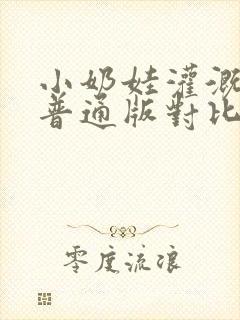 小奶娃灌溉
普通版對比
零度流浪